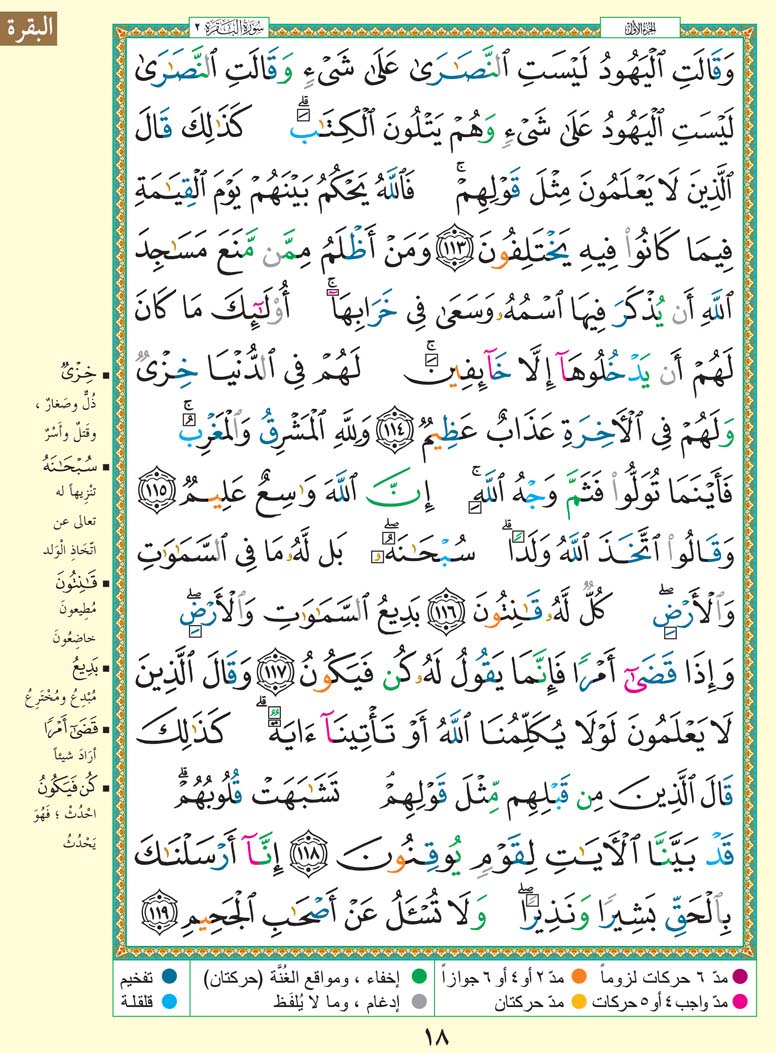 البقرة
سُورَةُ البَقَرَةِ ٢
الجزء الأول
وَقَالَتِ ٱلْيَهُودُ لَيْسَتِ ٱلنَّصَـٰرَىٰ عَلَىٰ شَىْءٍ وَقَالَتِ ٱلنَّصَـٰرَىٰ
لَيْسَتِ ٱلْيَهُودُ عَلَىٰ شَىْءٍ وَهُمْ يَتْلُونَ ٱلْكِتَـٰبَ ۗ كَذَٰلِكَ قَالَ
ٱلَّذِينَ لَا يَعْلَمُونَ مِثْلَ قَوْلِهِمْ ۚ فَٱللَّهُ يَحْكُمُ بَيْنَهُمْ يَوْمَ ٱلْقِيَـٰمَةِ
فِيمَا كَانُوا۟ فِيهِ يَخْتَلِفُونَ ١١٣ وَمَنْ أَظْلَمُ مِمَّن مَّنَعَ مَسَـٰجِدَ
ٱللَّهِ أَن يُذْكَرَ فِيهَا ٱسْمُهُۥ وَسَعَىٰ فِى خَرَابِهَآ ۚ أُو۟لَـٰٓئِكَ مَا كَانَ
لَهُمْ أَن يَدْخُلُوهَآ إِلَّا خَآئِفِينَ ۚ لَهُمْ فِى ٱلدُّنْيَا خِزْىٌ
وَلَهُمْ فِى ٱلْـَٔاخِرَةِ عَذَابٌ عَظِيمٌ ١١٤ وَلِلَّهِ ٱلْمَشْرِقُ وَٱلْمَغْرِبُ ۚ
فَأَيْنَمَا تُوَلُّوا۟ فَثَمَّ وَجْهُ ٱللَّهِ ۚ إِنَّ ٱللَّهَ وَٰسِعٌ عَلِيمٌ ١١٥
وَقَالُوا۟ ٱتَّخَذَ ٱللَّهُ وَلَدًا ۗ سُبْحَـٰنَهُۥ ۖ بَل لَّهُۥ مَا فِى ٱلسَّمَـٰوَٰتِ
وَٱلْأَرْضِ ۖ كُلٌّ لَّهُۥ قَـٰنِتُونَ ١١٦ بَدِيعُ ٱلسَّمَـٰوَٰتِ وَٱلْأَرْضِ ۖ
وَإِذَا قَضَىٰٓ أَمْرًا فَإِنَّمَا يَقُولُ لَهُۥ كُن فَيَكُونُ ١١٧ وَقَالَ ٱلَّذِينَ
لَا يَعْلَمُونَ لَوْلَا يُكَلِّمُنَا ٱللَّهُ أَوْ تَأْتِينَآ ءَايَةٌ ۗ كَذَٰلِكَ
قَالَ ٱلَّذِينَ مِن قَبْلِهِم مِّثْلَ قَوْلِهِمْ ۘ تَشَـٰبَهَتْ قُلُوبُهُمْ ۗ
قَدْ بَيَّنَّا ٱلْـَٔايَـٰتِ لِقَوْمٍ يُوقِنُونَ ١١٨ إِنَّآ أَرْسَلْنَـٰكَ
بِٱلْحَقِّ بَشِيرًا وَنَذِيرًا ۖ وَلَا تُسْـَٔلُ عَنْ أَصْحَـٰبِ ٱلْجَحِيمِ ١١٩
▪ خِزْىٌ
ذُلٌّ وصَغارٌ ،
وقتلٌ وأَسْرٌ
▪ سُبْحَـٰنَهُ
تنْزِيهاً له
تعالى عن
اتّخَاذِ الْوَلد
▪ قَـٰنِتُونَ
مُطِيعونَ
خاضِعُونَ
▪ بَدِيعُ
مُبْدِعُ ومُخْتَرِعُ
▪ قَضَىٰٓ أَمْرًا
أرَادَ شيئاً
▪ كُن فَيَكُونُ
احْدُثْ ؛ فَهُوَ
يَحْدُثُ
مدّ ٦ حركات لزوماً
مدّ ٢ أو ٤ أو ٦ جوازاً
إخفاء ، ومواقع الغُنَّة (حركتان)
تفخيم
مدّ واجب ٤ أو ٥ حركات
مدّ حركتان
إدغام ، وما لا يُلفَظ
قلقلة
١٨